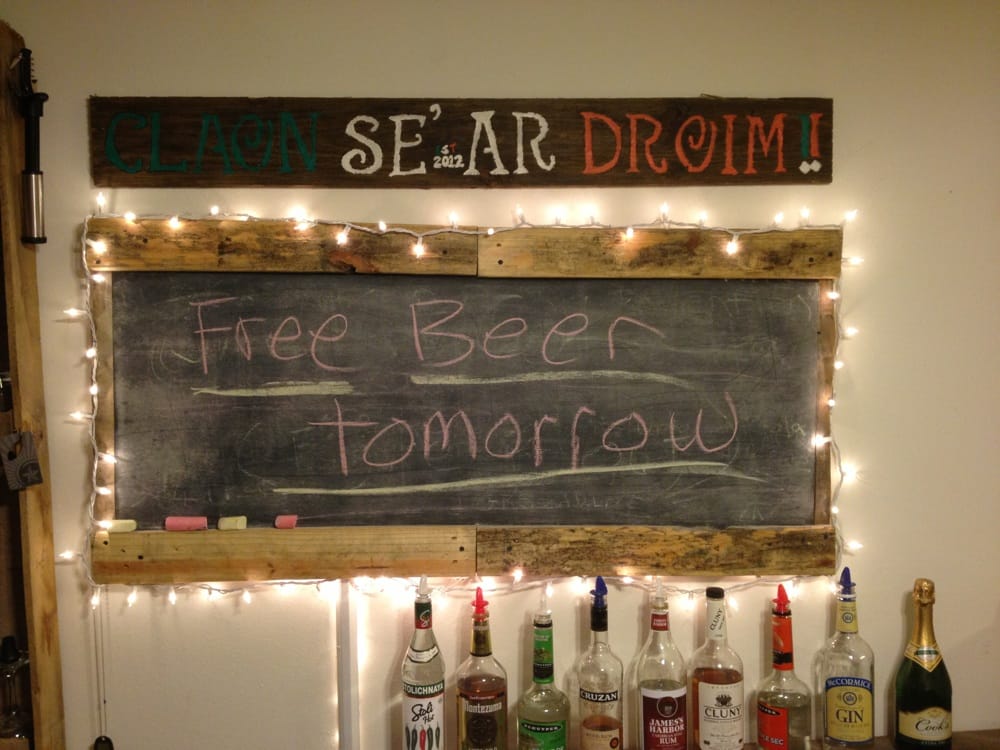 CLAON SE'AR DROIM!!
EST
2012
Free Beer
tomorrow
STOLICHNAYA
Stoli
Hot
Montezuma
CRUZAN
JAMES'S
HARBOR
RUM
CLUNY
CLUNY
SEC
McCORMICK
GIN
Cook's